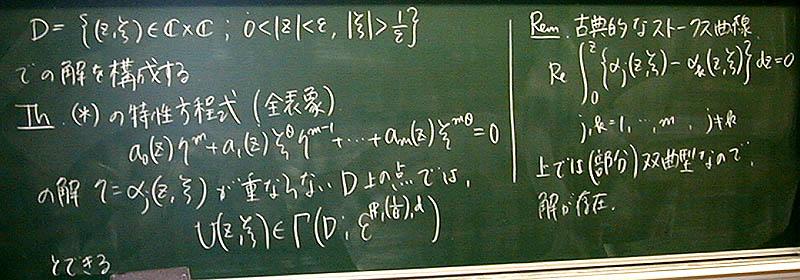 D = {(z,ξ) ∈ ℂ×ℂ ; 0<|z|<ε, |ξ|>1/ε}
での解を構成する
Th. (*) の特性方程式 (全表象)
a₀(z)η^m + a₁(z)ξ^θ η^{m-1} + ‥‥ + a_m(z)ξ^{mθ} = 0
の解 η = α_j(z,ξ) が重ならない D 上の点では,
U(z,ξ) ∈ Γ(D;
とできる
Rem. 古典的なストークス曲線
Re ∫₀^z {α_j(z,ξ) - α_k(z,ξ)} dz = 0
j, k = 1, ‥, m, j ≠ k
上では (部分) 双曲型なので,
解が存在.